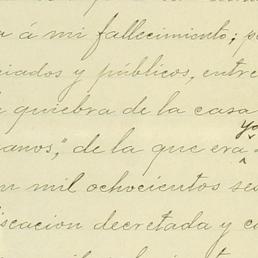 á mi fallecimiento;
y públicos, entre
quiebra de la casa
de la que era yo
mil ochocientos
decretada y